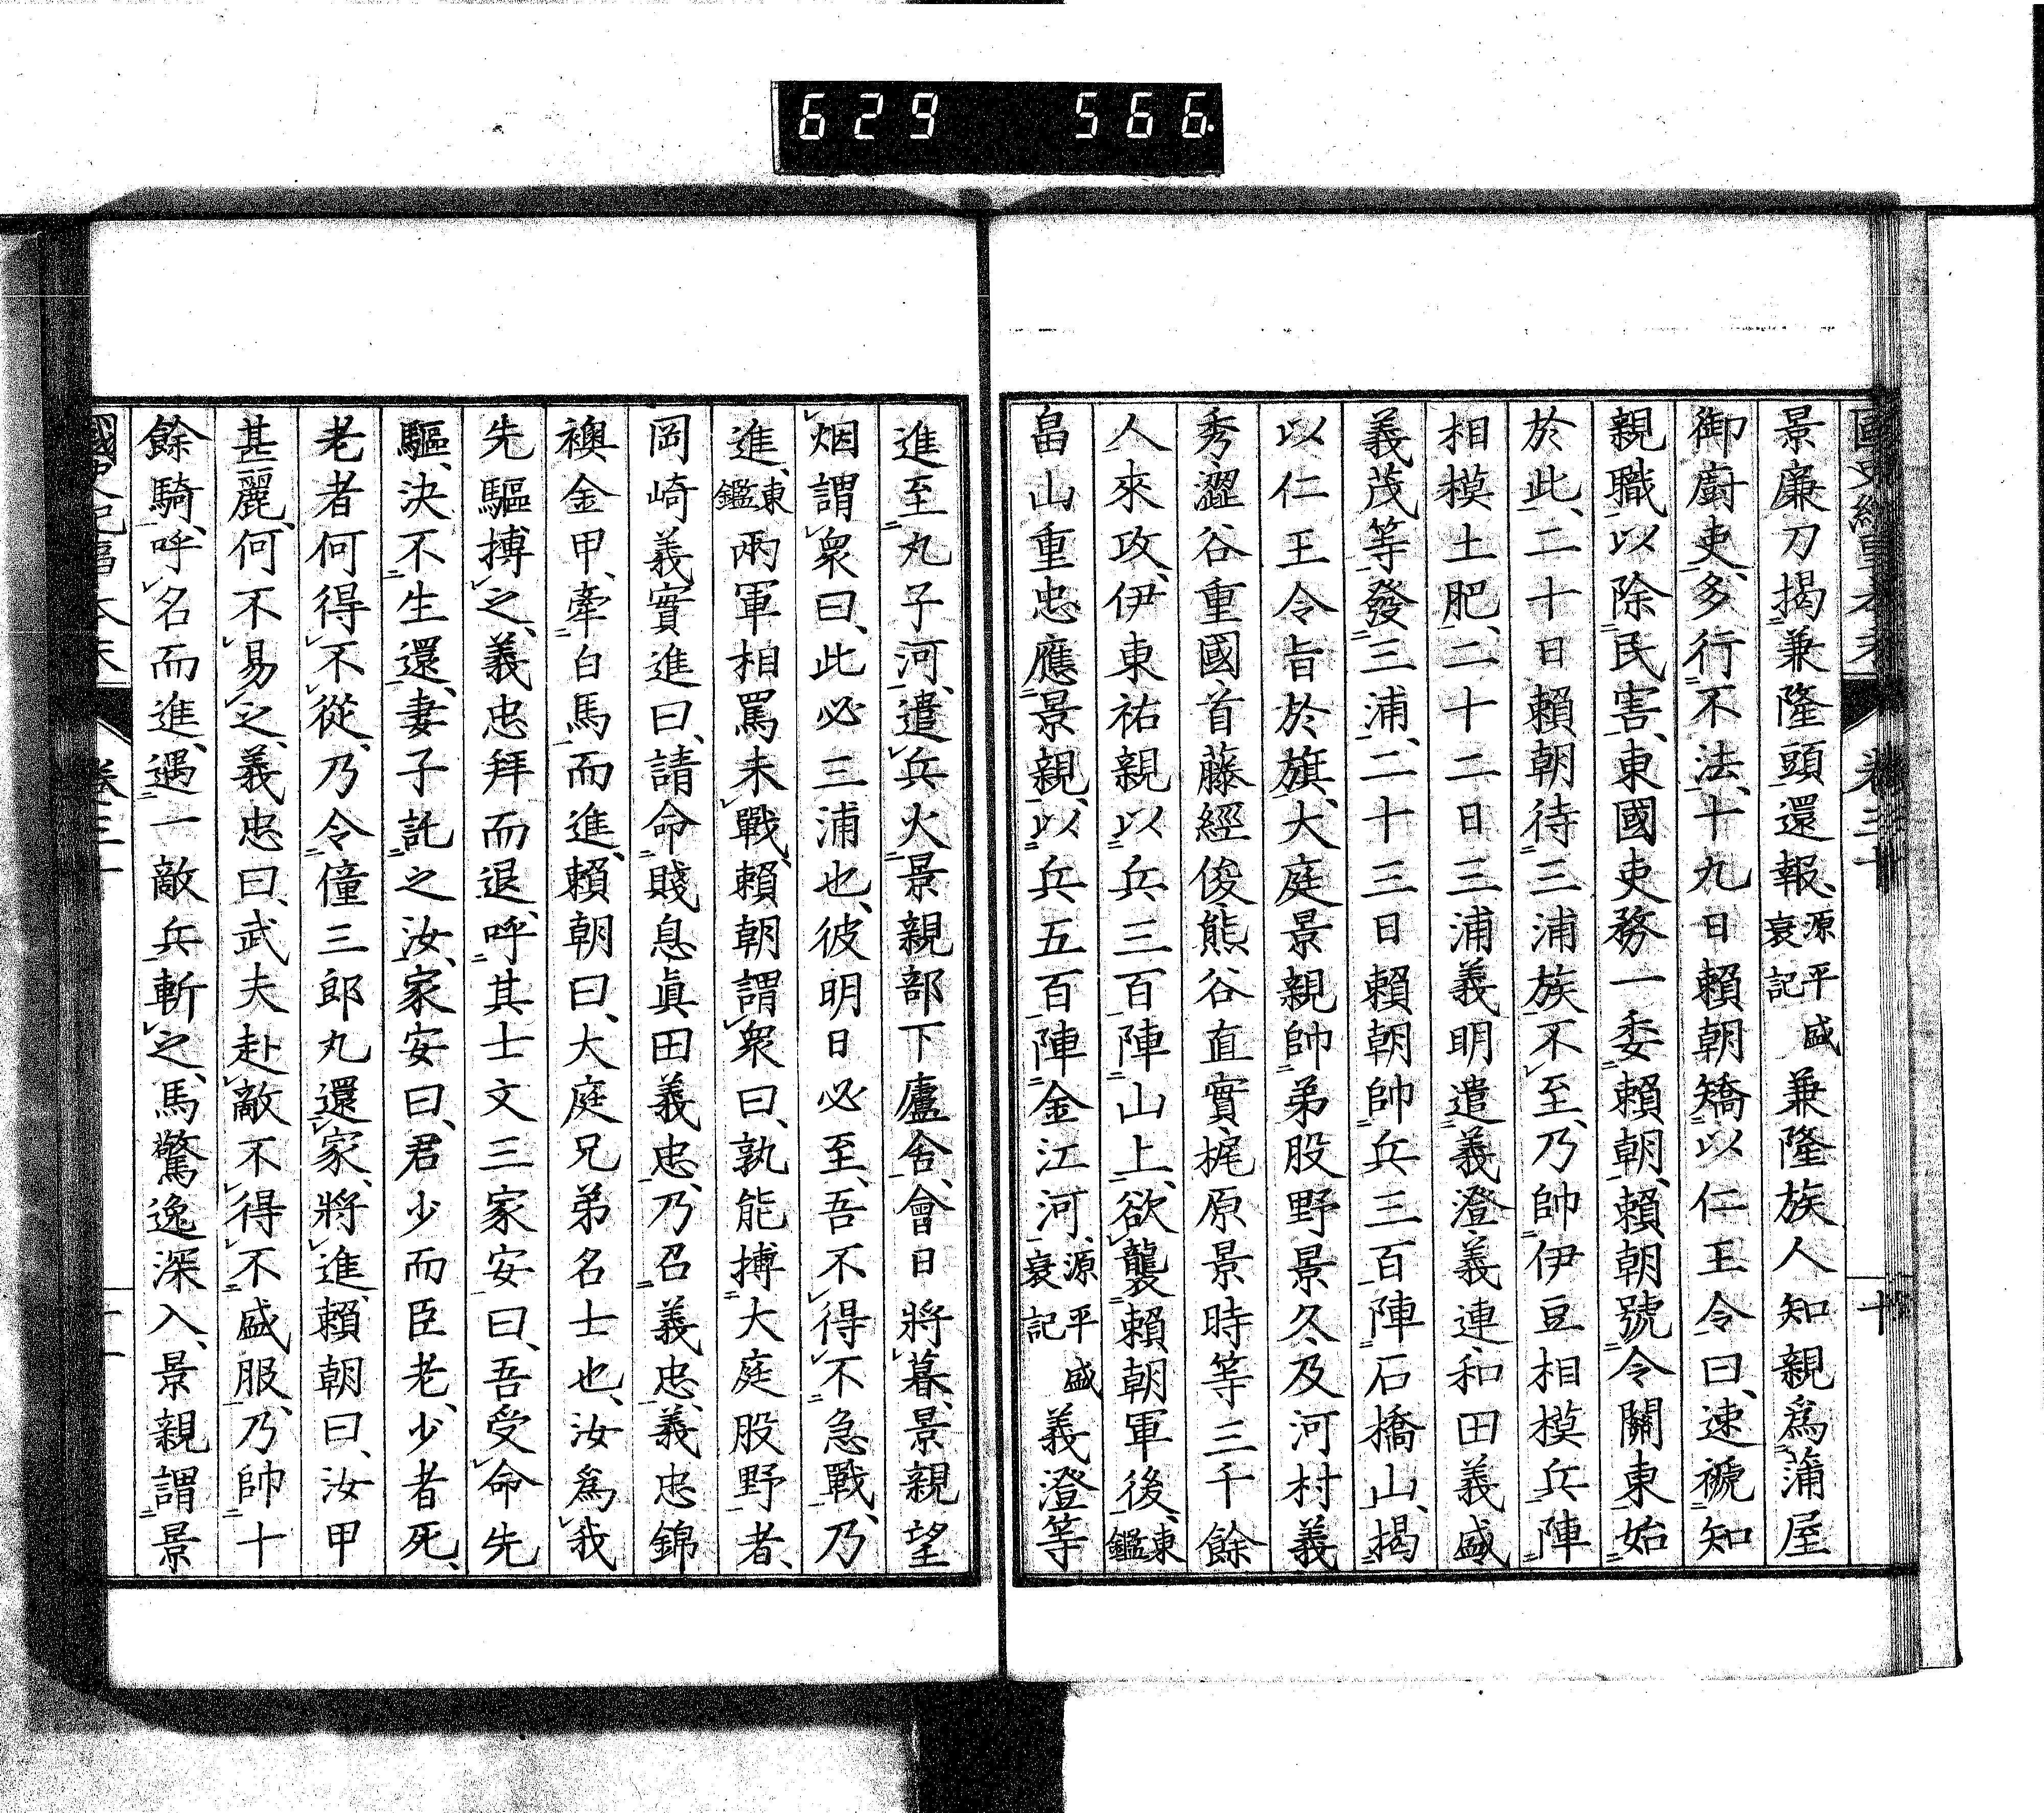 629 566.
景廉刀揭兼隆頭還報、源平盛衰記兼隆族人知親爲蒲屋
御廚吏、多行不法、十九日賴朝矯以仁王令曰、速褫知
親職、以除民害、東國吏務一委賴朝、賴朝號令關東始
於此、二十日賴朝待三浦族不至、乃帥伊豆相模兵陣
相模土肥、二十二日三浦義明遣義澄義連和田義盛
義茂等發三浦、二十三日賴朝帥兵三百陣石橋山、揭
以仁王令旨於旗、大庭景親帥弟股野景久及河村義
秀澀谷重國首藤經俊熊谷直實梶原景時等三千餘
人來攻、伊東祐親以兵三百陣山上、欲襲賴朝軍後、東鑑
畠山重忠應景親、以兵五百陣金江河、源平盛衰記義澄等
卷三十
十
進至丸子河、遣兵火景親部下廬舍、會日將暮、景親望
烟謂衆曰、此必三浦也、彼明日必至、吾不得不急戰、乃
進、東鑑兩軍相罵未戰、賴朝謂衆曰、孰能搏大庭股野者、
岡崎義實進曰、請命賤息眞田義忠、乃召義忠、義忠錦
襖金甲、牽白馬而進、賴朝曰、大庭兄弟名士也、汝爲我
先驅搏之、義忠拜而退、呼其士文三家安曰、吾受命先
驅、決不生還、妻子託之汝、家安曰、君少而臣老、少者死、
老者何得不從、乃令僮三郎丸還家、將進、賴朝曰、汝甲
甚麗、何不易之、義忠曰、武夫赴敵不得不盛服、乃帥十
餘騎、呼名而進、遇一敵兵斬之、馬驚逸深入、景親謂景